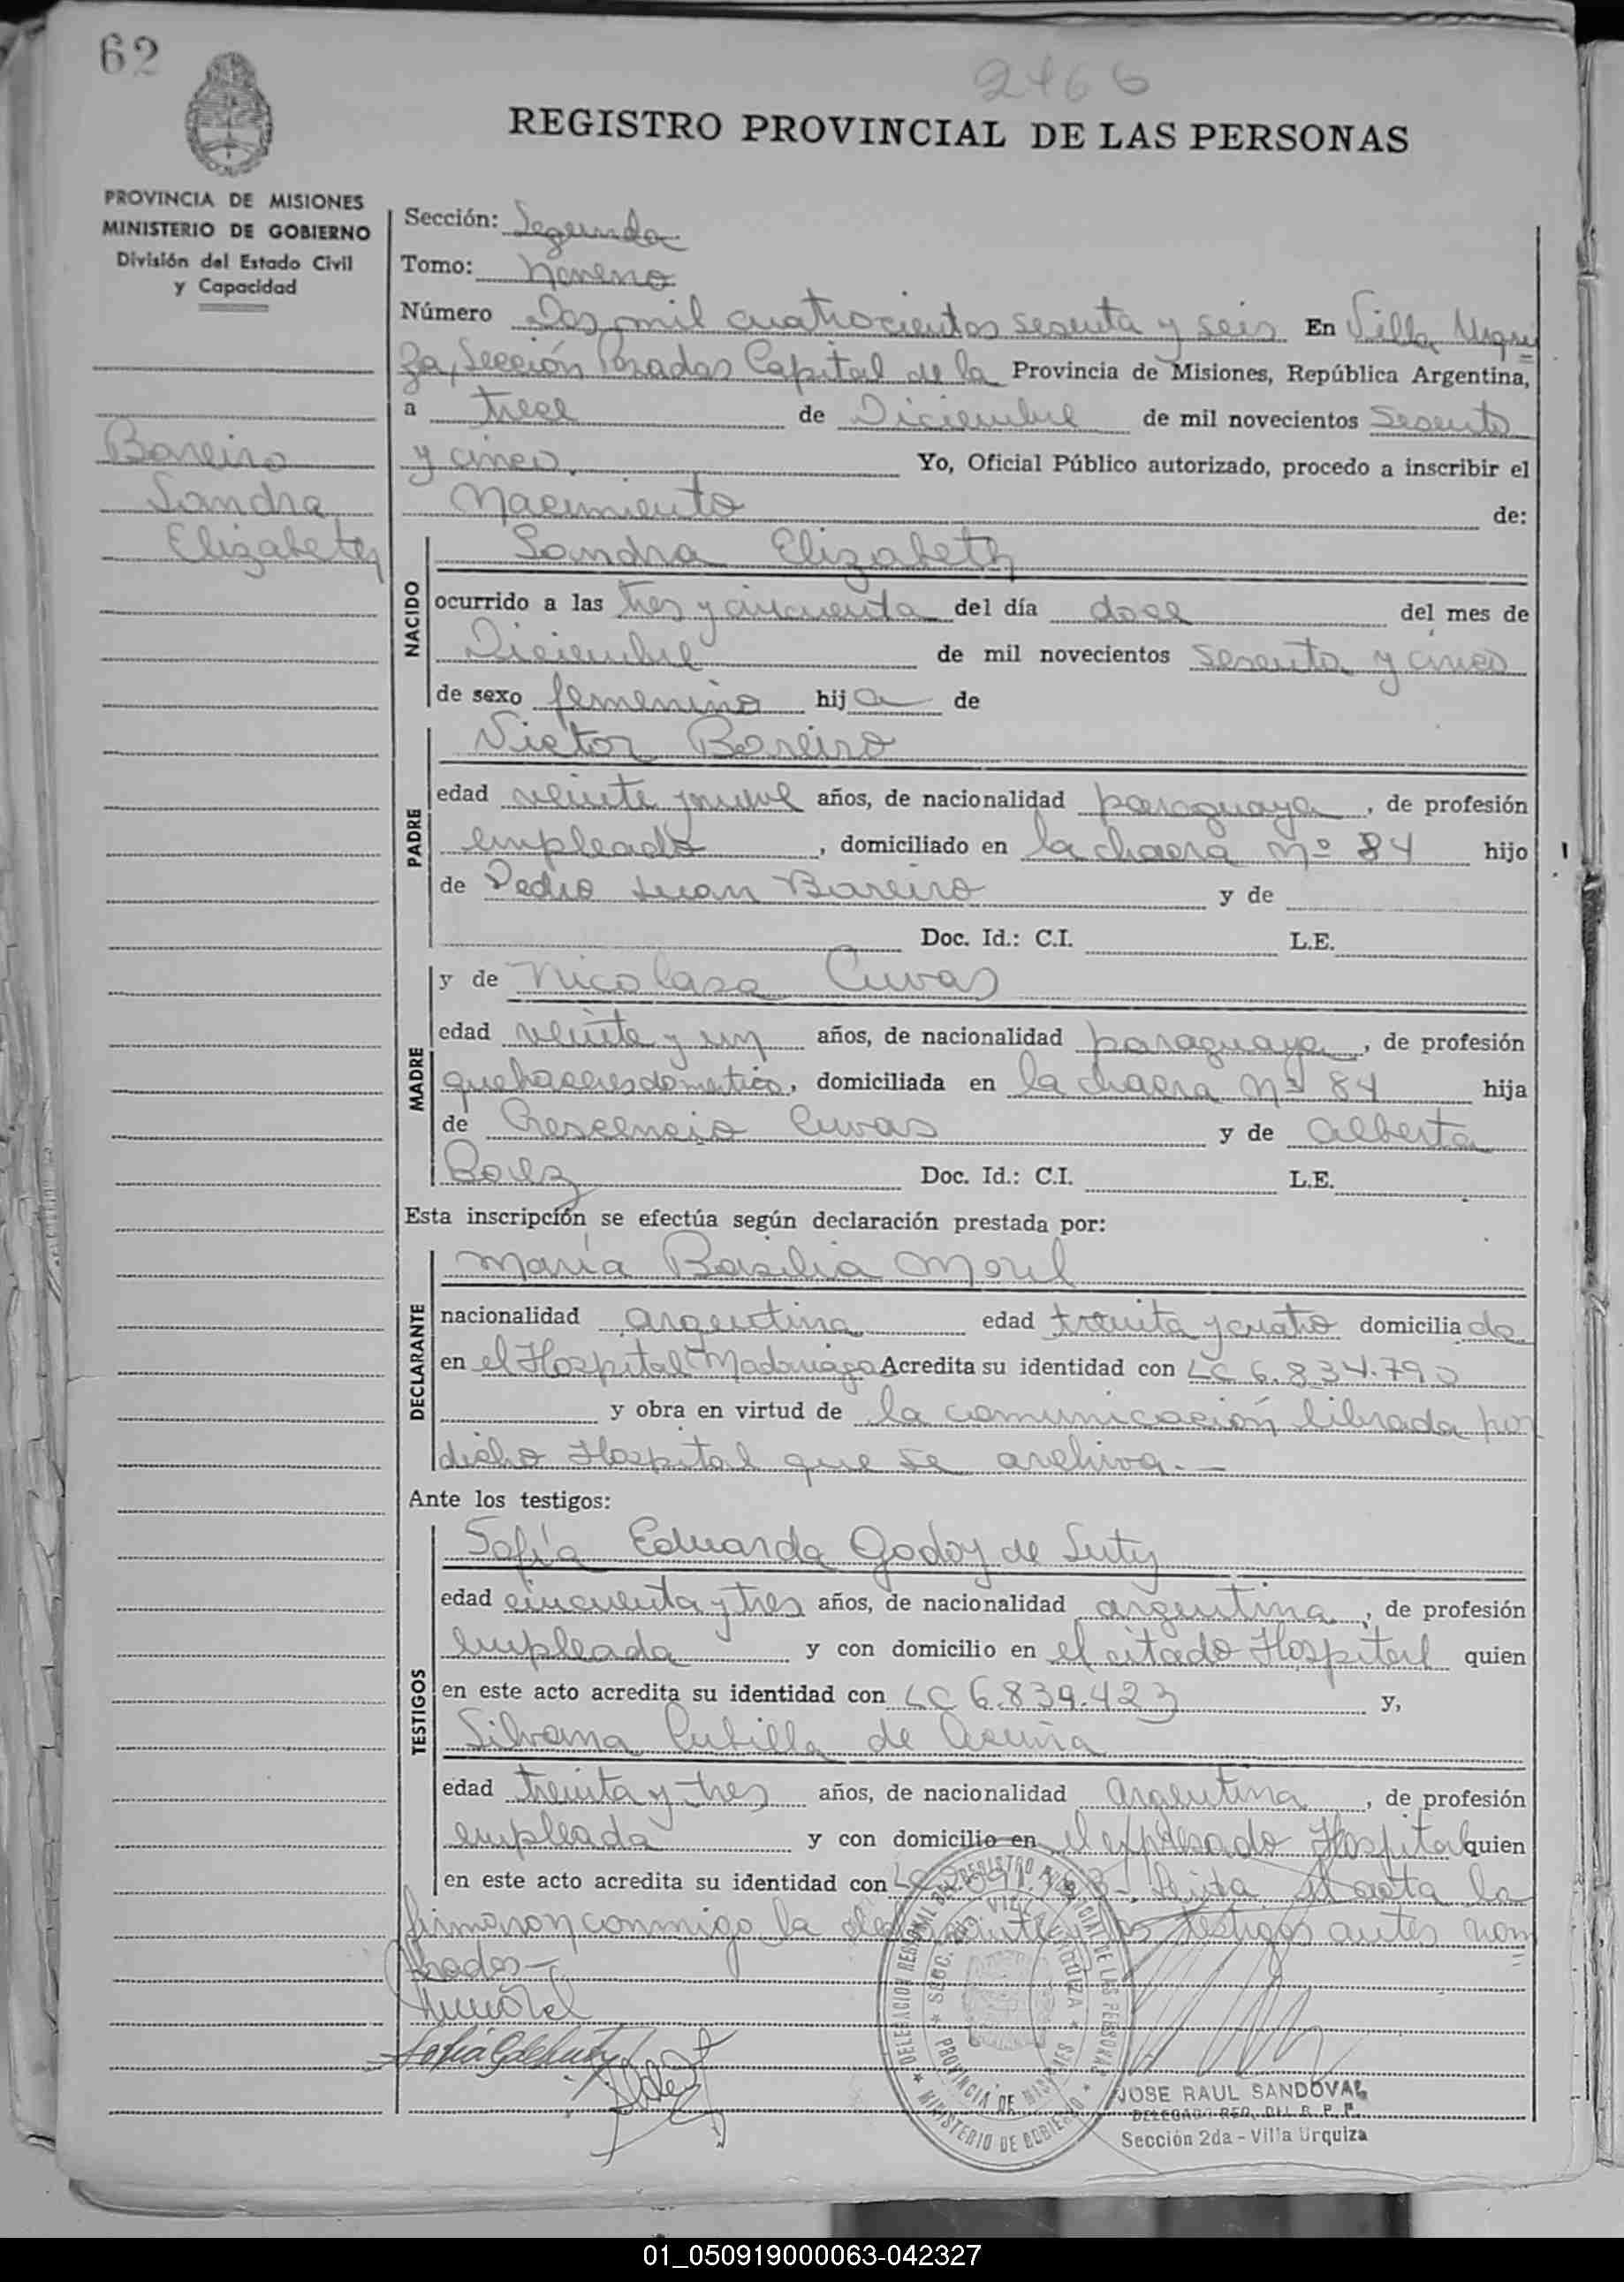 62
2466
REGISTRO PROVINCIAL DE LAS PERSONAS
PROVINCIA DE MISIONES
MINISTERIO DE GOBIERNO
División del Estado Civil
y Capacidad
Bareiro
Sandra
Elizabeth
Sección: Segunda
Tomo: Noveno
Número Dos mil cuatrocientos sesenta y seis En Villa Urqui
za, Sección Posadas Capital de la Provincia de Misiones, República Argentina,
a trece de Diciembre de mil novecientos Sesenta
y cinco. Yo, Oficial Público autorizado, procedo a inscribir el
Nacimiento de:
NACIDO
Sandra Elizabeth
ocurrido a las tres y cincuenta del día doce del mes de
Diciembre de mil novecientos sesenta y cinco
de sexo femenino hija de
PADRE
Victor Bareiro
edad veinte y nueve años, de nacionalidad paraguaya, de profesión
empleado, domiciliado en la chacra Nº 84 hijo
de Pedro Juan Bareiro y de
Doc. Id.: C.I. L.E.
MADRE
y de Nicolasa Cuvas
edad veinte y un años, de nacionalidad paraguaya, de profesión
quehaceres domestico, domiciliada en la chacra Nº 84 hija
de Crescencio Cuvas y de Alberta
Baez Doc. Id.: C.I. L.E.
Esta inscripción se efectúa según declaración prestada por:
DECLARANTE
María Basilia Morel
nacionalidad argentina edad treinta y cuatro domiciliada
en el Hospital Madariaga Acredita su identidad con LC 6.834.790
y obra en virtud de la comunicación librada por
dicho Hospital que se archiva.-
Ante los testigos:
TESTIGOS
Sofía Eduarda Godoy de Luty
edad cincuenta y tres años, de nacionalidad argentina, de profesión
empleada y con domicilio en el citado Hospital quien
en este acto acredita su identidad con LC 6.839.423 y,
Silvana Cubilla de Acuña
edad treinta y tres años, de nacionalidad Argentina, de profesión
empleada y con domicilio en el expresado Hospital quien
en este acto acredita su identidad con LC acta la
firmaron conmigo la declarante y los testigos antes nom
brados-
DELEGACION REGIONAL DEL REGISTRO PROVINCIAL DE LAS PERSONAS
SECC. 2DA VILLA URQUIZA
PROVINCIA DE MISIONES
MINISTERIO DE GOBIERNO
JOSE RAUL SANDOVAL
DELEGADO REG. DEL R. P. P.
Sección 2da - Villa Urquiza
01_050919000063-042327